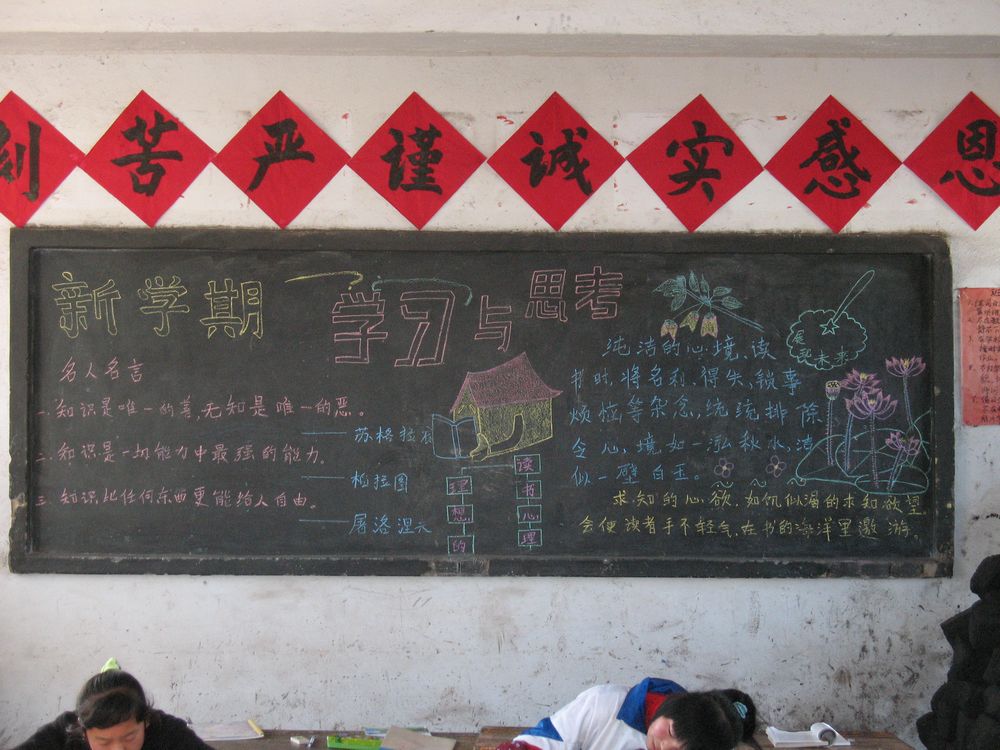 刻苦严谨诚实感恩
新学期
学习与思考
名人名言
一.知识是唯一的善,无知是唯一的恶。
——苏格拉底
二.知识是一切能力中最强的能力。
——柏拉图
三.知识比任何东西更能给人自由。
——屠洛涅夫
理想的
读书心理
纯洁的心境.读
书时,将名利、得失、锁事
烦恼等杂念,统统排除
令心境如一泓秋水,洁
似一壁白玉。
展现未来
求知的心欲.如饥似渴的求知欲望
会使读者手不轻气,在书的海洋里遨游。